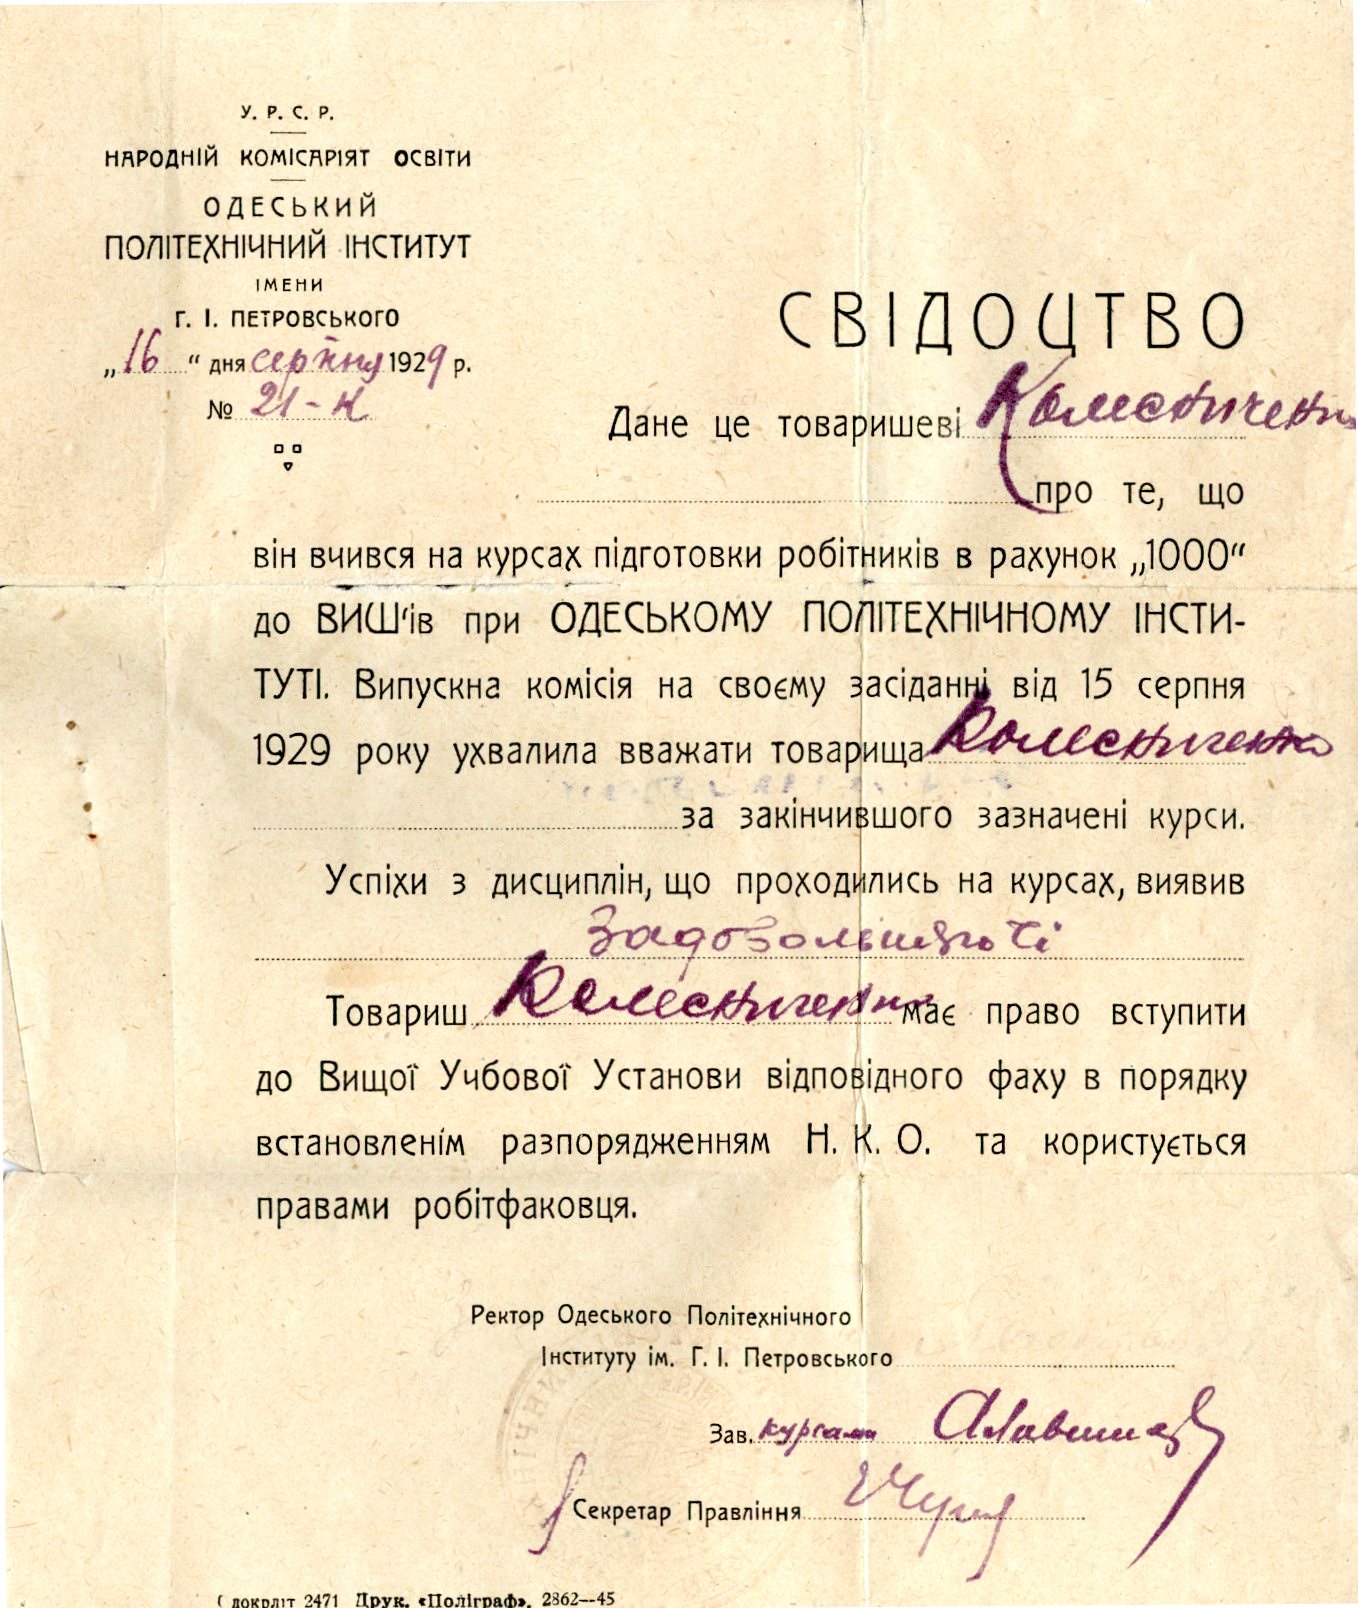 У. Р. С. Р.
НАРОДНІЙ КОМІСАРІЯТ ОСВІТИ
ОДЕСЬКИЙ
ПОЛІТЕХНІЧНИЙ ІНСТИТУТ
ІМЕНИ
Г. І. ПЕТРОВСЬКОГО
„16“ дня серпня 1929 р.
№ 21-К
СВІДОЦТВО
Дане це товаришеві Колесниченко
про те, що
він вчився на курсах підготовки робітників в рахунок „1000“
до ВИШ'ів при ОДЕСЬКОМУ ПОЛІТЕХНІЧНОМУ ІНСТИ-
ТУТІ. Випускна комісія на своєму засіданні від 15 серпня
1929 року ухвалила вважати товарища Колесниченко
за закінчившого зазначені курси.
Успіхи з дисциплін, що проходились на курсах, виявив
Товариш Колесниченко має право вступити
до Вищої Учбової Установи відповідного фаху в порядку
встановленім разпорядженням Н. К. О. та користується
правами робітфаковця.
Ректор Одеського Політехнічного
Інституту ім. Г. І. Петровського
Зав. курсами
Секретар Правління
докрліт 2471 Друк. «Поліграф». 2862—45